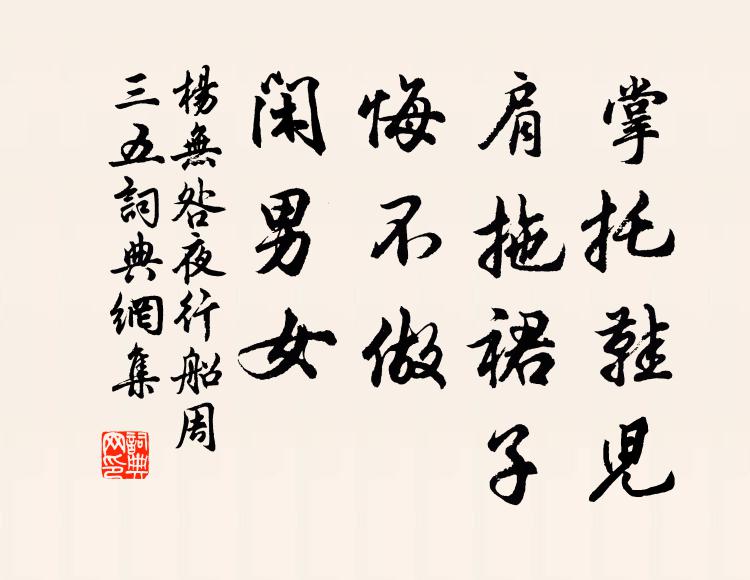 掌托鞋兒
肩拖裙子
悔不做
閑男女
楊無咎夜行船周
三五詞典網集
詞典網印